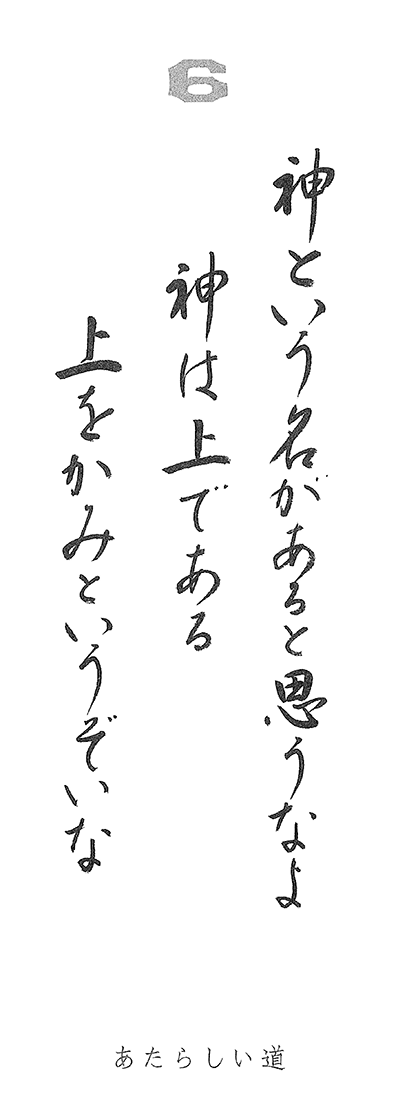 6
神という名があると思うなよ
神は上である
上をかみというぞいな
あたらしい道